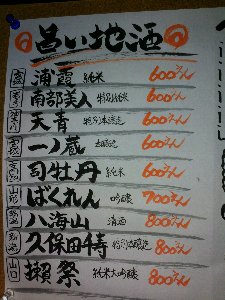 旨い地酒
宮城 浦霞 純米 600えん
岩手 南部美人 特別純米 600えん
天青 特別本醸造 600えん
宮城 一ノ蔵 600えん
高知 司牡丹 純米 600えん
山形 ばくれん 吟醸 700えん
新潟 八海山 清酒 800えん
新潟 久保田千寿 特別本醸造 800えん
山口 獺祭 純米大吟醸 800えん